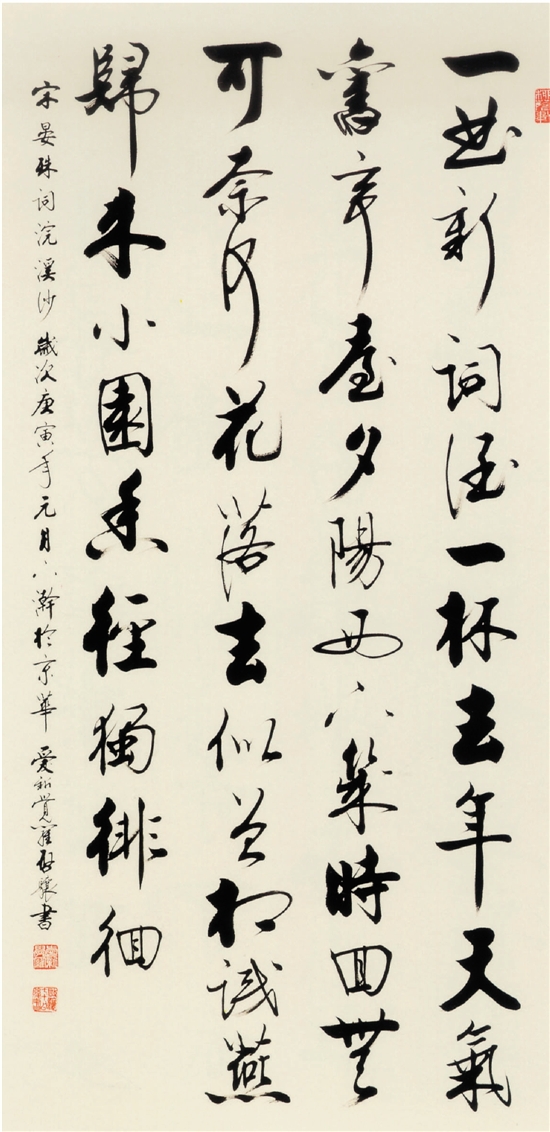 一曲新詞酒一杯去年天氣
舊亭臺夕陽西下幾時回無
可奈何花落去似曾相識燕
歸來小園香徑獨徘徊
宋晏殊詞浣溪沙歲次庚寅年元月下澣於京華愛新覺羅啟驤書